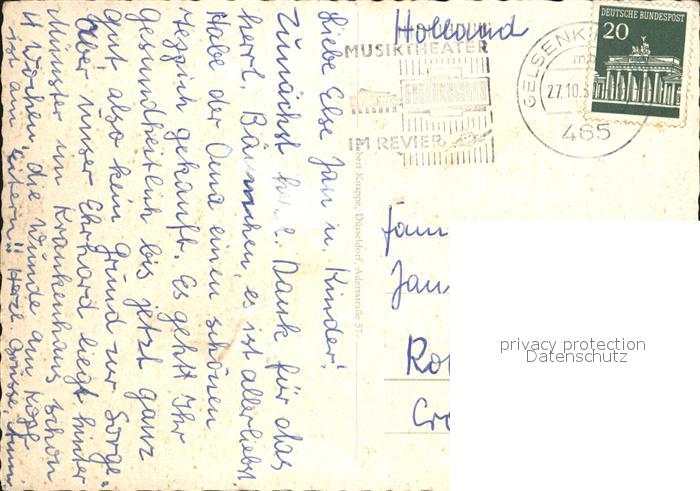 Liebe Else Jan u. Kinder!
Zunächst Dank für das
herrl. Bäumchen, es ist allerliebst.
Habe der Oma einen schönen
Teppich gekauft. Es geht Ihr
gesundheitlich bis jetzt ganz
gut, also kein Grund zur Sorge.
Aber unser Ehrhard liegt hinter
Münster im Krankenhaus schon
4 Wochen, die Wunde am Kopf
ist am Eitern!! Herzl. Grüsse,
Holland
MUSIKTHEATER
IM REVIER
GELSENK
27.10.
465
DEUTSCHE BUNDESPOST
20
Hubert Knappe, Düsseldorf, Adersstraße 57
Fam
Jan
Ro
Cr
privacy protection
Datenschutz